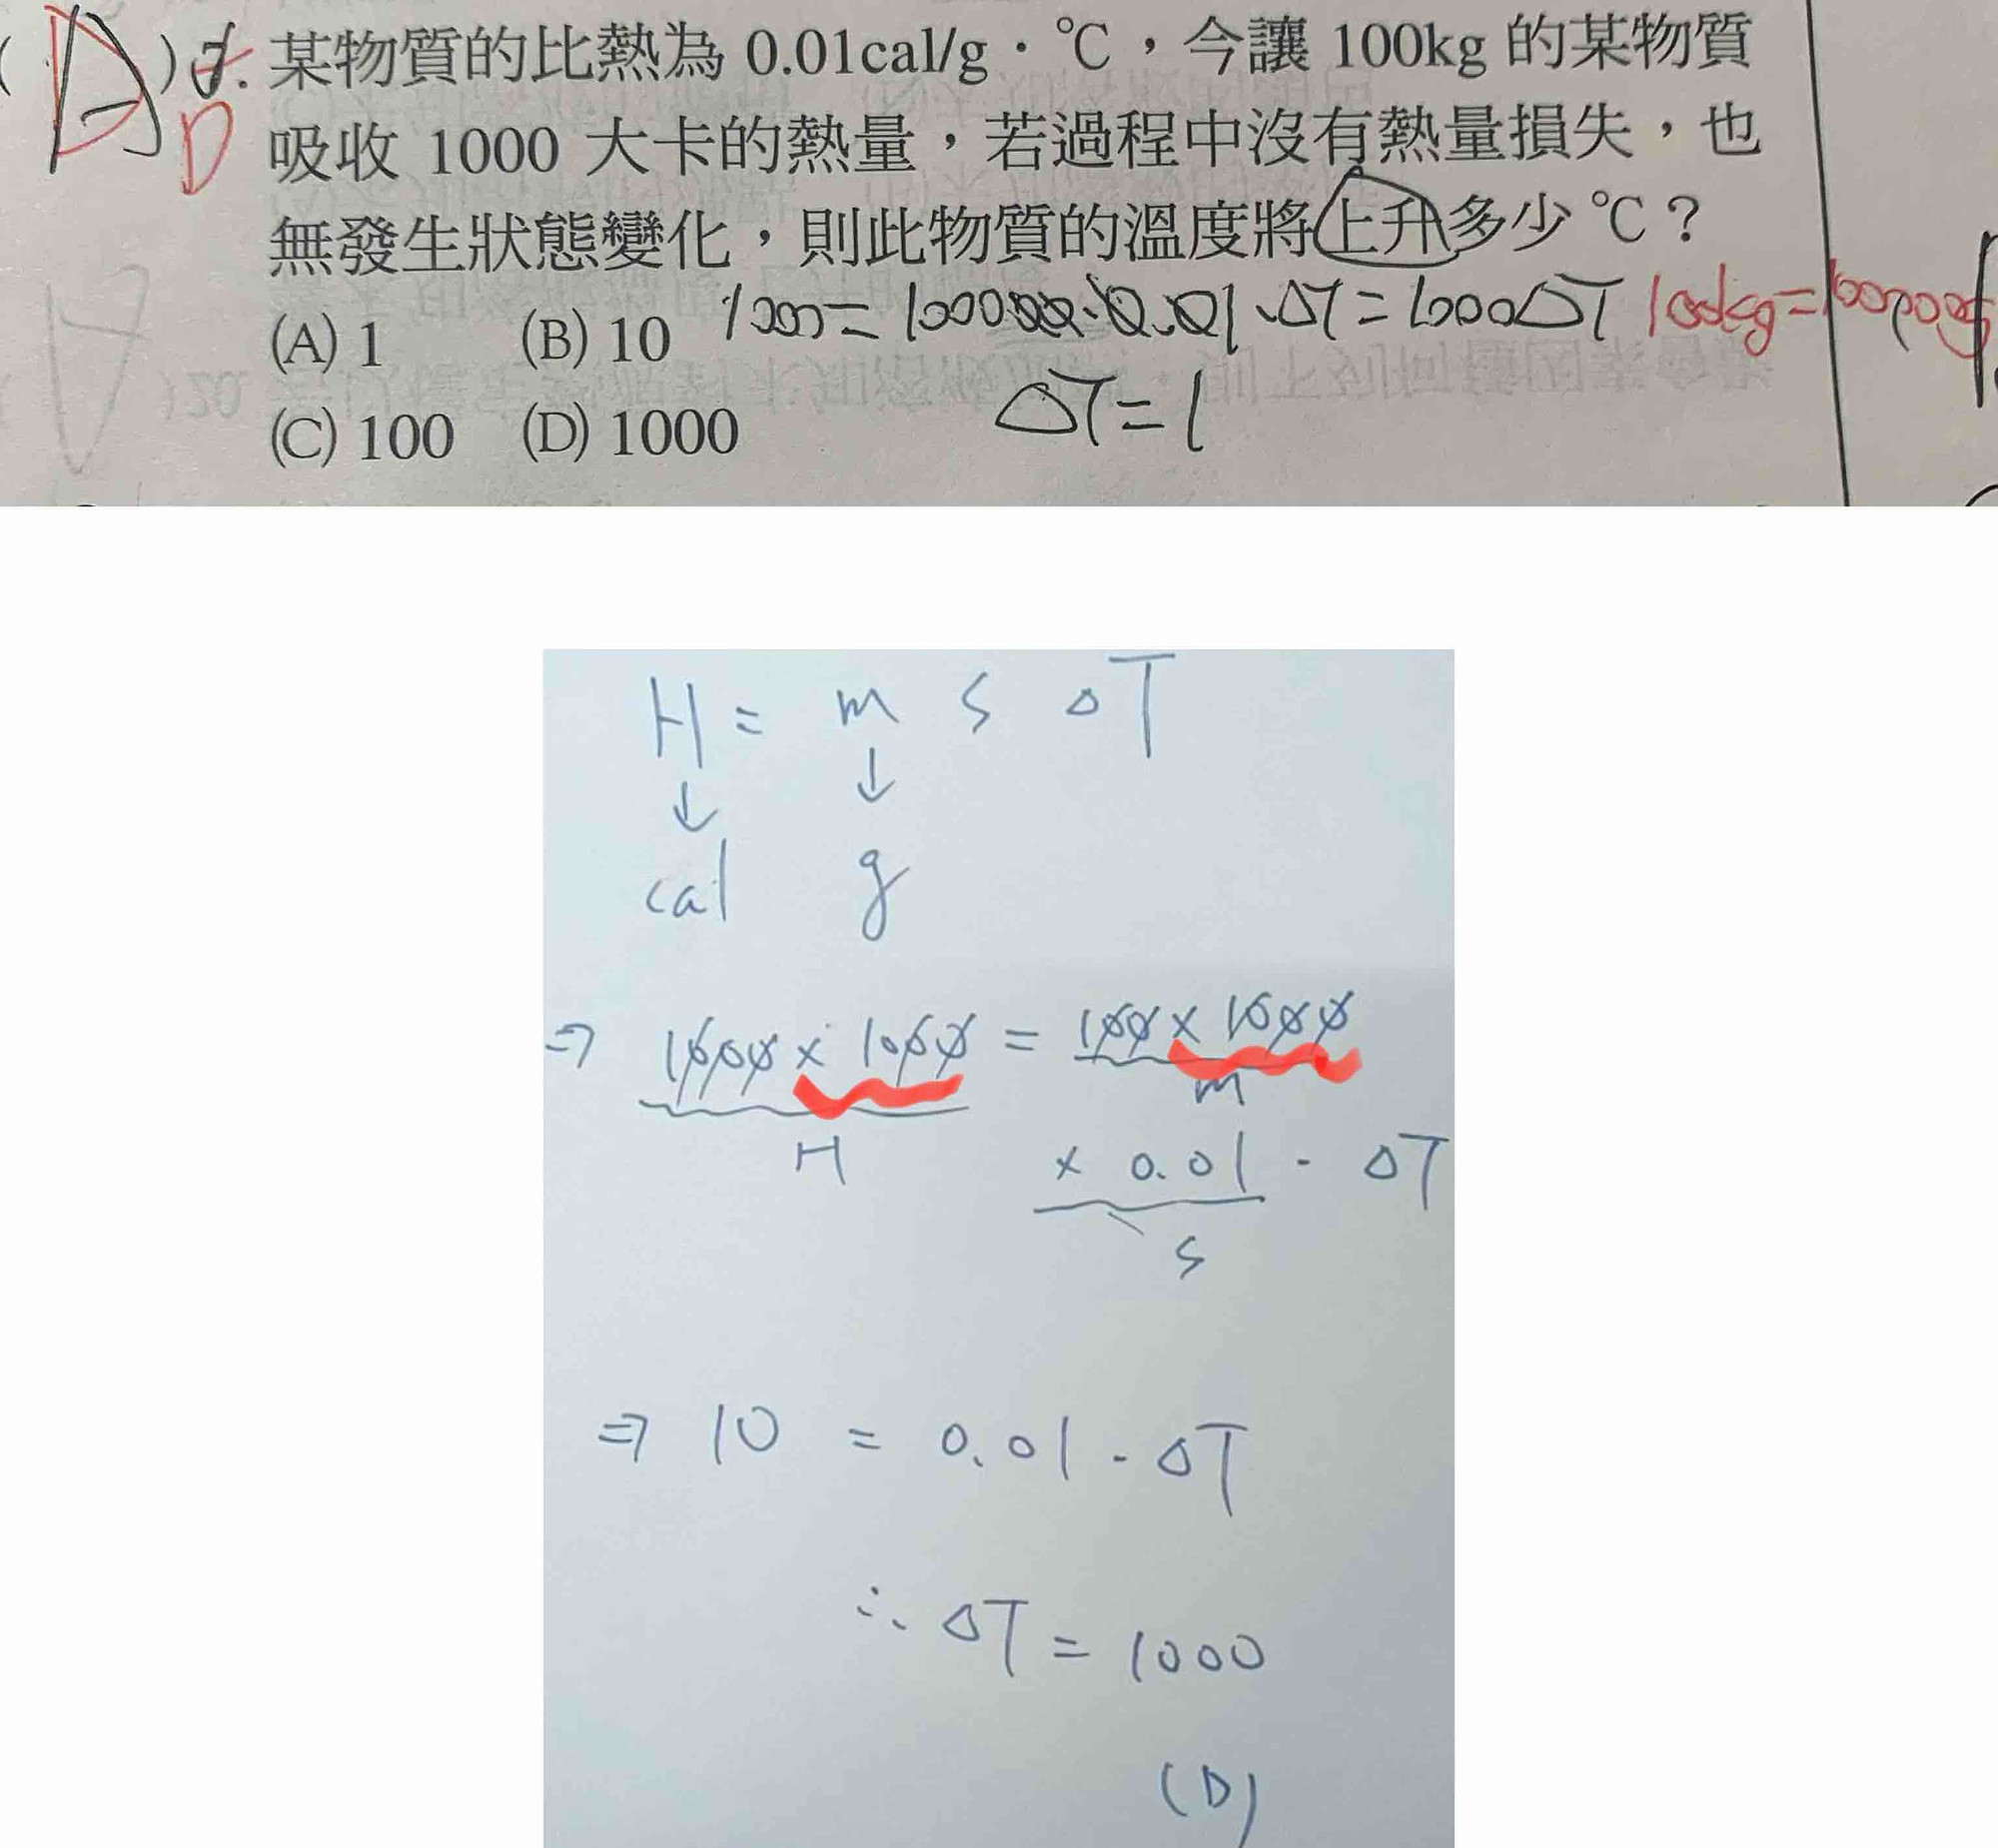 (A) 7. 某物質的比熱為 0.01cal/g·℃，今讓 100kg 的某物質
D 吸收 1000 大卡的熱量，若過程中沒有熱量損失，也
無發生狀態變化，則此物質的溫度將上升多少℃？
(A) 1 (B) 10 1000 = 100000·0.01·ΔT = 1000ΔT 100kg=100000g
(C) 100 (D) 1000 ΔT = 1
H = m s ΔT
↓ ↓
cal g
⇒ 1000 × 1000 = 100 × 1000
H m
× 0.01 · ΔT
s
⇒ 10 = 0.01 · ΔT
∴ ΔT = 1000
(D)